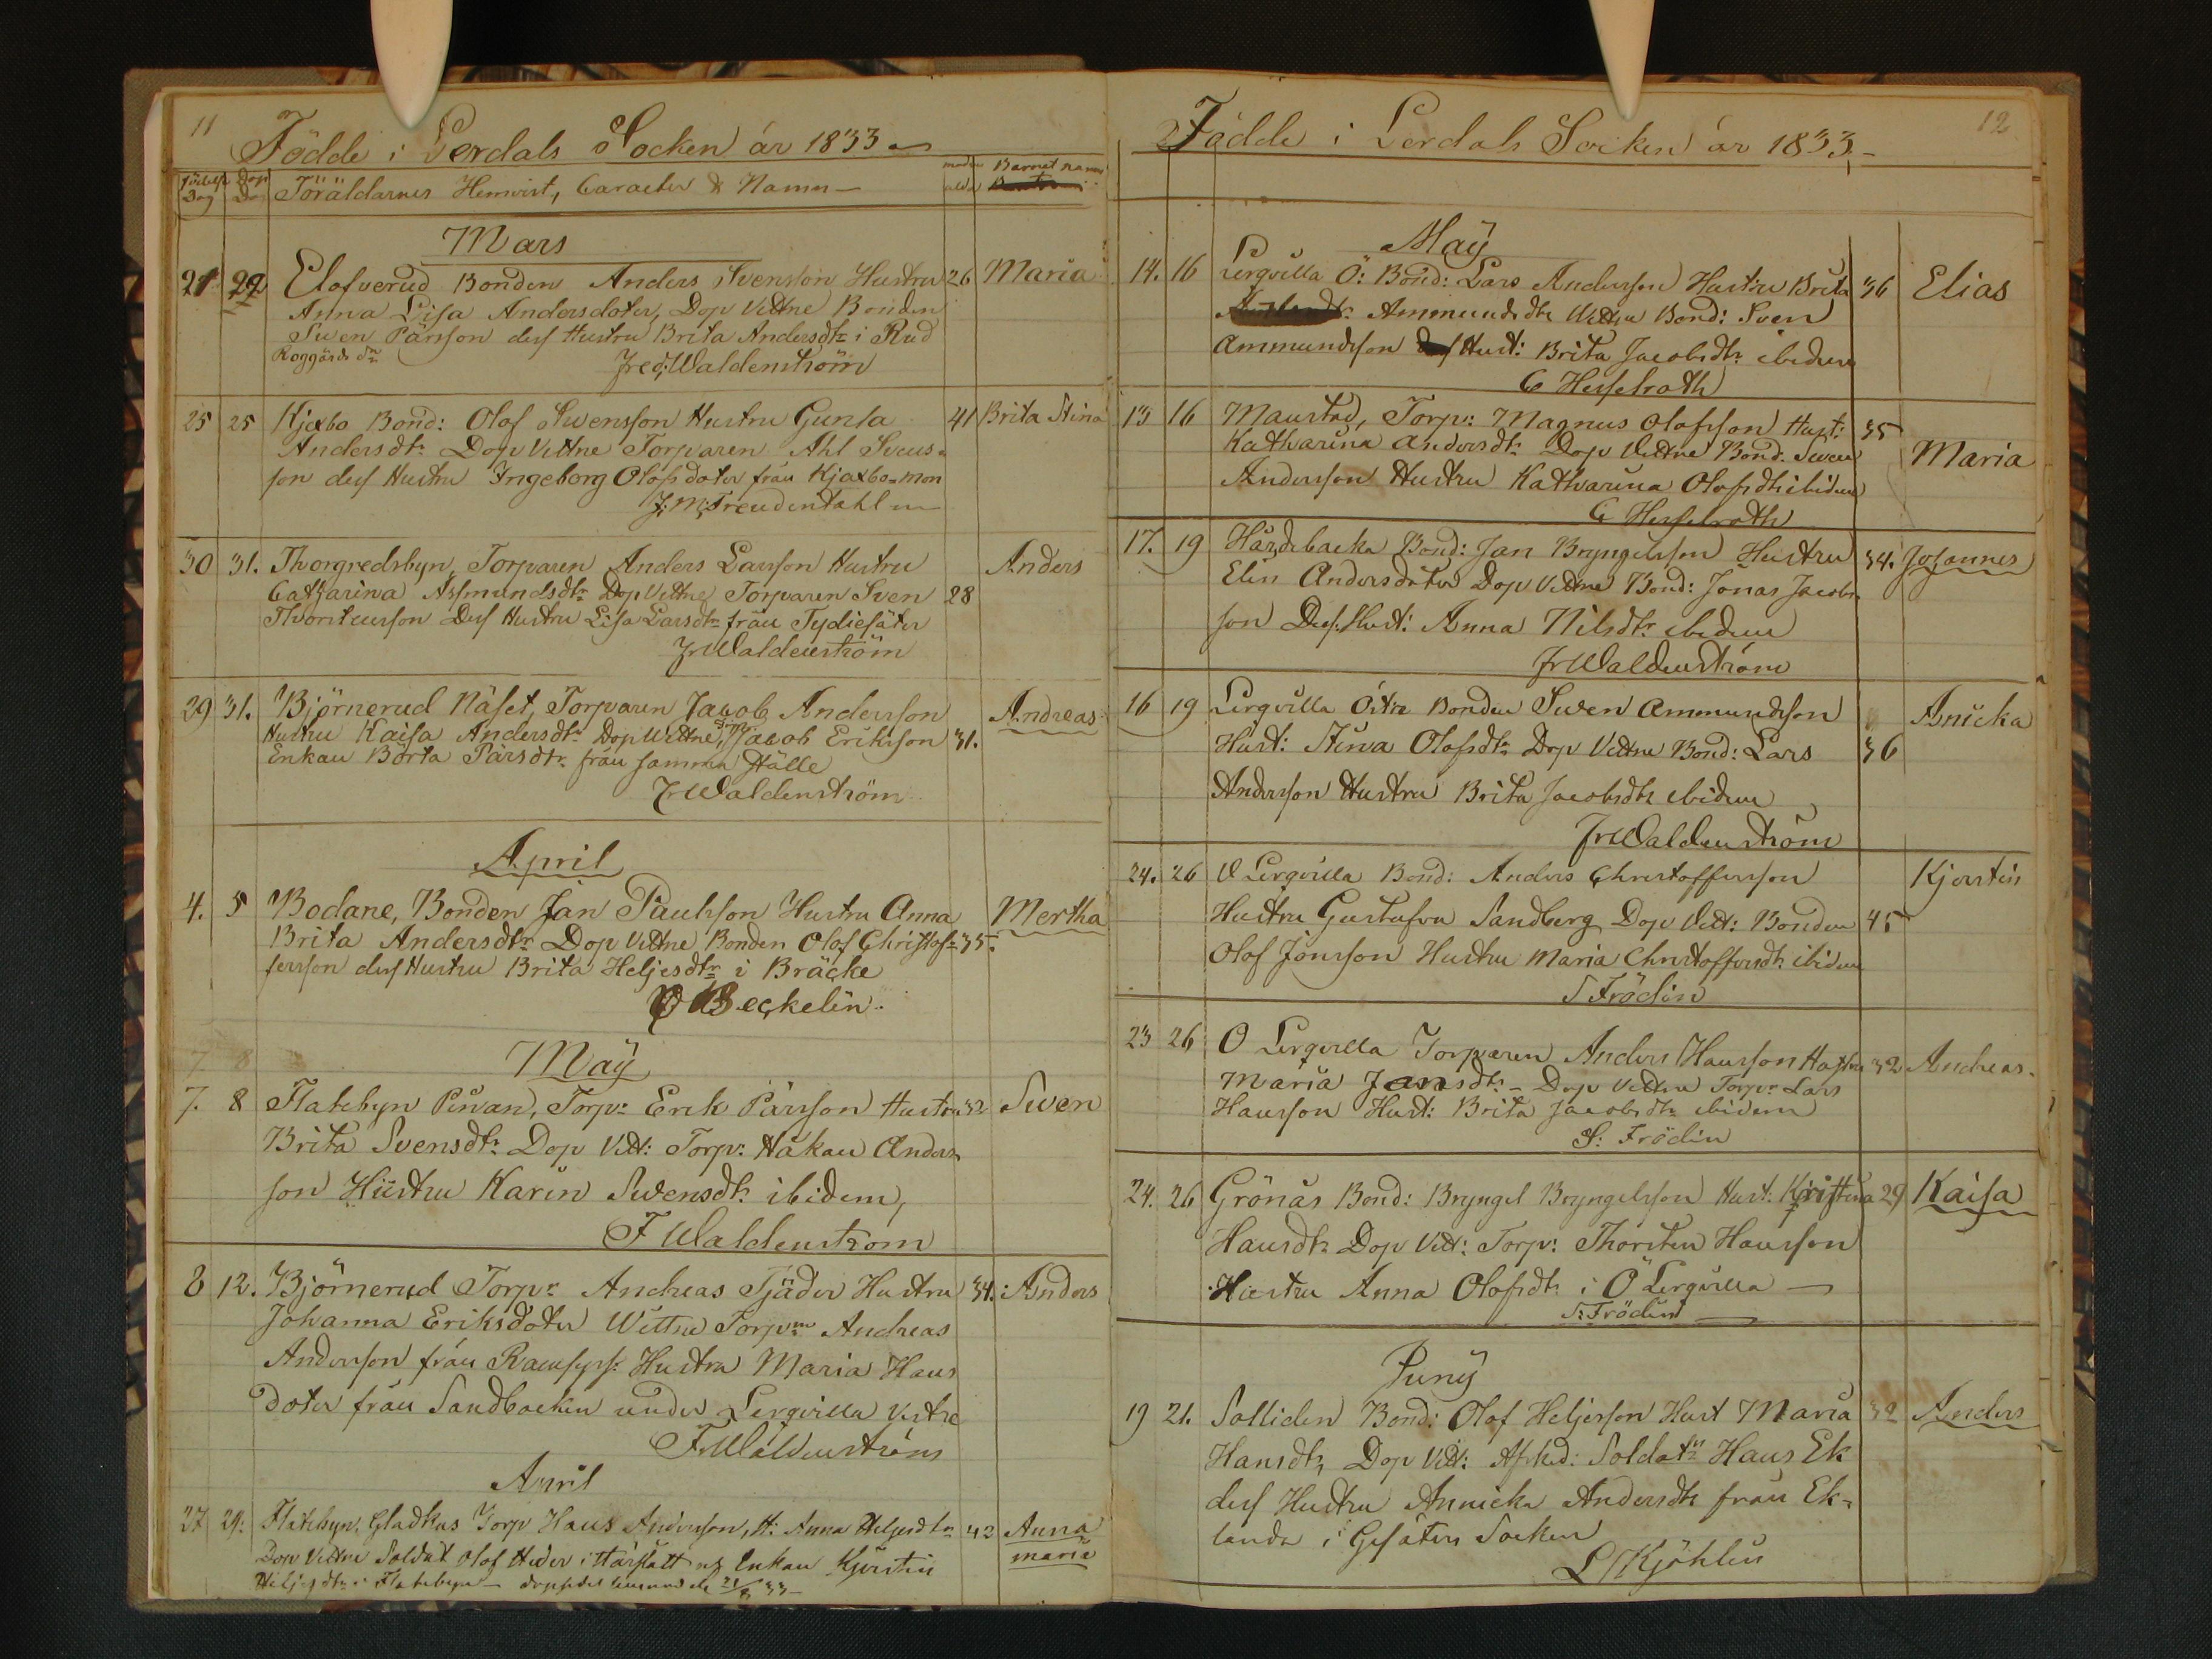 11
Födde i Lerdals Socken år 1833
Födelse Dag Dop Dag Föräldarnes Hemvist, Caracter & Namn — moders alder Barnet namn
Mars
21 22 Elofverud Bonden Anders Svensson Hustru 26 Maria
Anna Lisa Andersdoter, Dop Vittne Bonden
Swen Pärsson dess Hustru Brita Andersdtr i Rud
Roggärds dr
Fred: Waldenström
25 25 Kjexbo Bond: Olof Swensson Hustru Gunla 41 Brita Stina
Andersdtr Dop Vittne Torparen Ahl Svens-
son dess Hustru Ingeborg Olofsdoter från Kjaxbo-mon
J: M: Freudentahl
30 31. Thorgredsbyn, Torparen Anders Larsson Hustru Anders
Catharina Assmundsdtr Dop Vittne Torparen Sven 28
Thorstensson Dess Hustru Lisa Larsdtr från Tydiesäter
Fr Waldenström
29 31. Björnerud Näset, Torparen Jacob Andersson Andreas
Hustru Kaisa Andersdtr Dop Vittne, Torp Jacob Eriksson 31.
Enkan Börta Pärsdtr från samma ställe
Fr Waldenström
April
4. 5 Bodane, Bonden Jan Paulsson Hustru Anna Mertha
Brita Andersdtr Dop Vittne Bonden Olof Christof- 35.
fersson dess Hustru Brita Heljesdtr i Bräcke
O Beckelin
7 8
May
7. 8 Flatebyn Pinan, Torpr Erik Pärsson Hustru 32 Swen
Brita Svensdtr Dop Vitt: Torp: Håkan Anders-
son Hustru Karin Swensdtr ibidem,
F Waldenstrom
8 12. Björnerud Torpr Andreas Tjäder Hustru 34. Anders
Johanna Eriksdoter Wittne Torpm Andreas
Andersson från Hustru Maria Hans
doter från Sandbacken under Lergvilla Vestre
F. Waldenström
April
27 29. Flatebyn, Gladkas Torp Hans Andersson, H: Anna Heljesdtr 42 Anna
Dop Vittne Soldat Olof Heder i Härslätt och Enkan Kjerstin maria
Heljesdtr i Flatebyn — 33 —
12
Födde i Lerdals Socken år 1833 —
May
14. 16 Lergvilla Ö: Bond: Lars Andersson Hustru Brita 36 Elias
Ammundsdtr Vittne Bond: Sven
Ammundsson Hust: Brita Jacobsdtr ibidem
C Hesselroth
13 16 Maustad, Torp: Magnus Olofsson Hust: 35
Katharina Andersdtr Dop Vittne Bond: Swen Maria
Andersson Hustru Katharina Olofsdtr ibidem
C Hesselroth
17. 19 Hårdebacka Bond: Jan Bryngelsson Hustru 34. Johannes
Elin Andersdoter Dop Vittne Bond: Jonas Jacobs-
son Dess Hust: Anna Nilsdtr ibidem
Fr Waldenström
16 19 Lergvilla Östre Bonden Swen Ammundsson Anicka
Hust: Stina Olofsdtr Dop Vittne Bond: Lars 36
Andersson Hustru Brita Jacobsdtr ibidem
Fr Waldenström
24. 26 V Lergvilla Bond: Anders Christoffersson Kjerstin
Hustru Gustafva Sandberg Dop Vitt: Bonden 45
Olof Jonsson Hustru Maria Christoffersdtr ibidem
S Frödin
23 26 O Lergvilla Torparen Anders Hansson Hustru 32 Andreas.
Maria Jansdtr — Dop Vittne Torpr Lars
Hansson Hust: Brita Jacobsdtr ibidem
S: Frödin
24. 26 Grönäs Bond: Bryngel Bryngelsson Hust: Kristina 29 Kaisa
Hansdtr Dop Vitt: Torp: Thorsten Hansson
Hustru Anna Olofsdtr i Ö Lergvilla —
S: Frödin
Juny
19 21. Solliden Bond: Olof Heljesson Hust Maria 32 Anders
Hansdtr, Dop Vitt: Afsked: Soldatn Hans Ek
dess Hustru Annicka Andersdtr från Ek-
landa i Gesäters Socken
L Kjöhlin